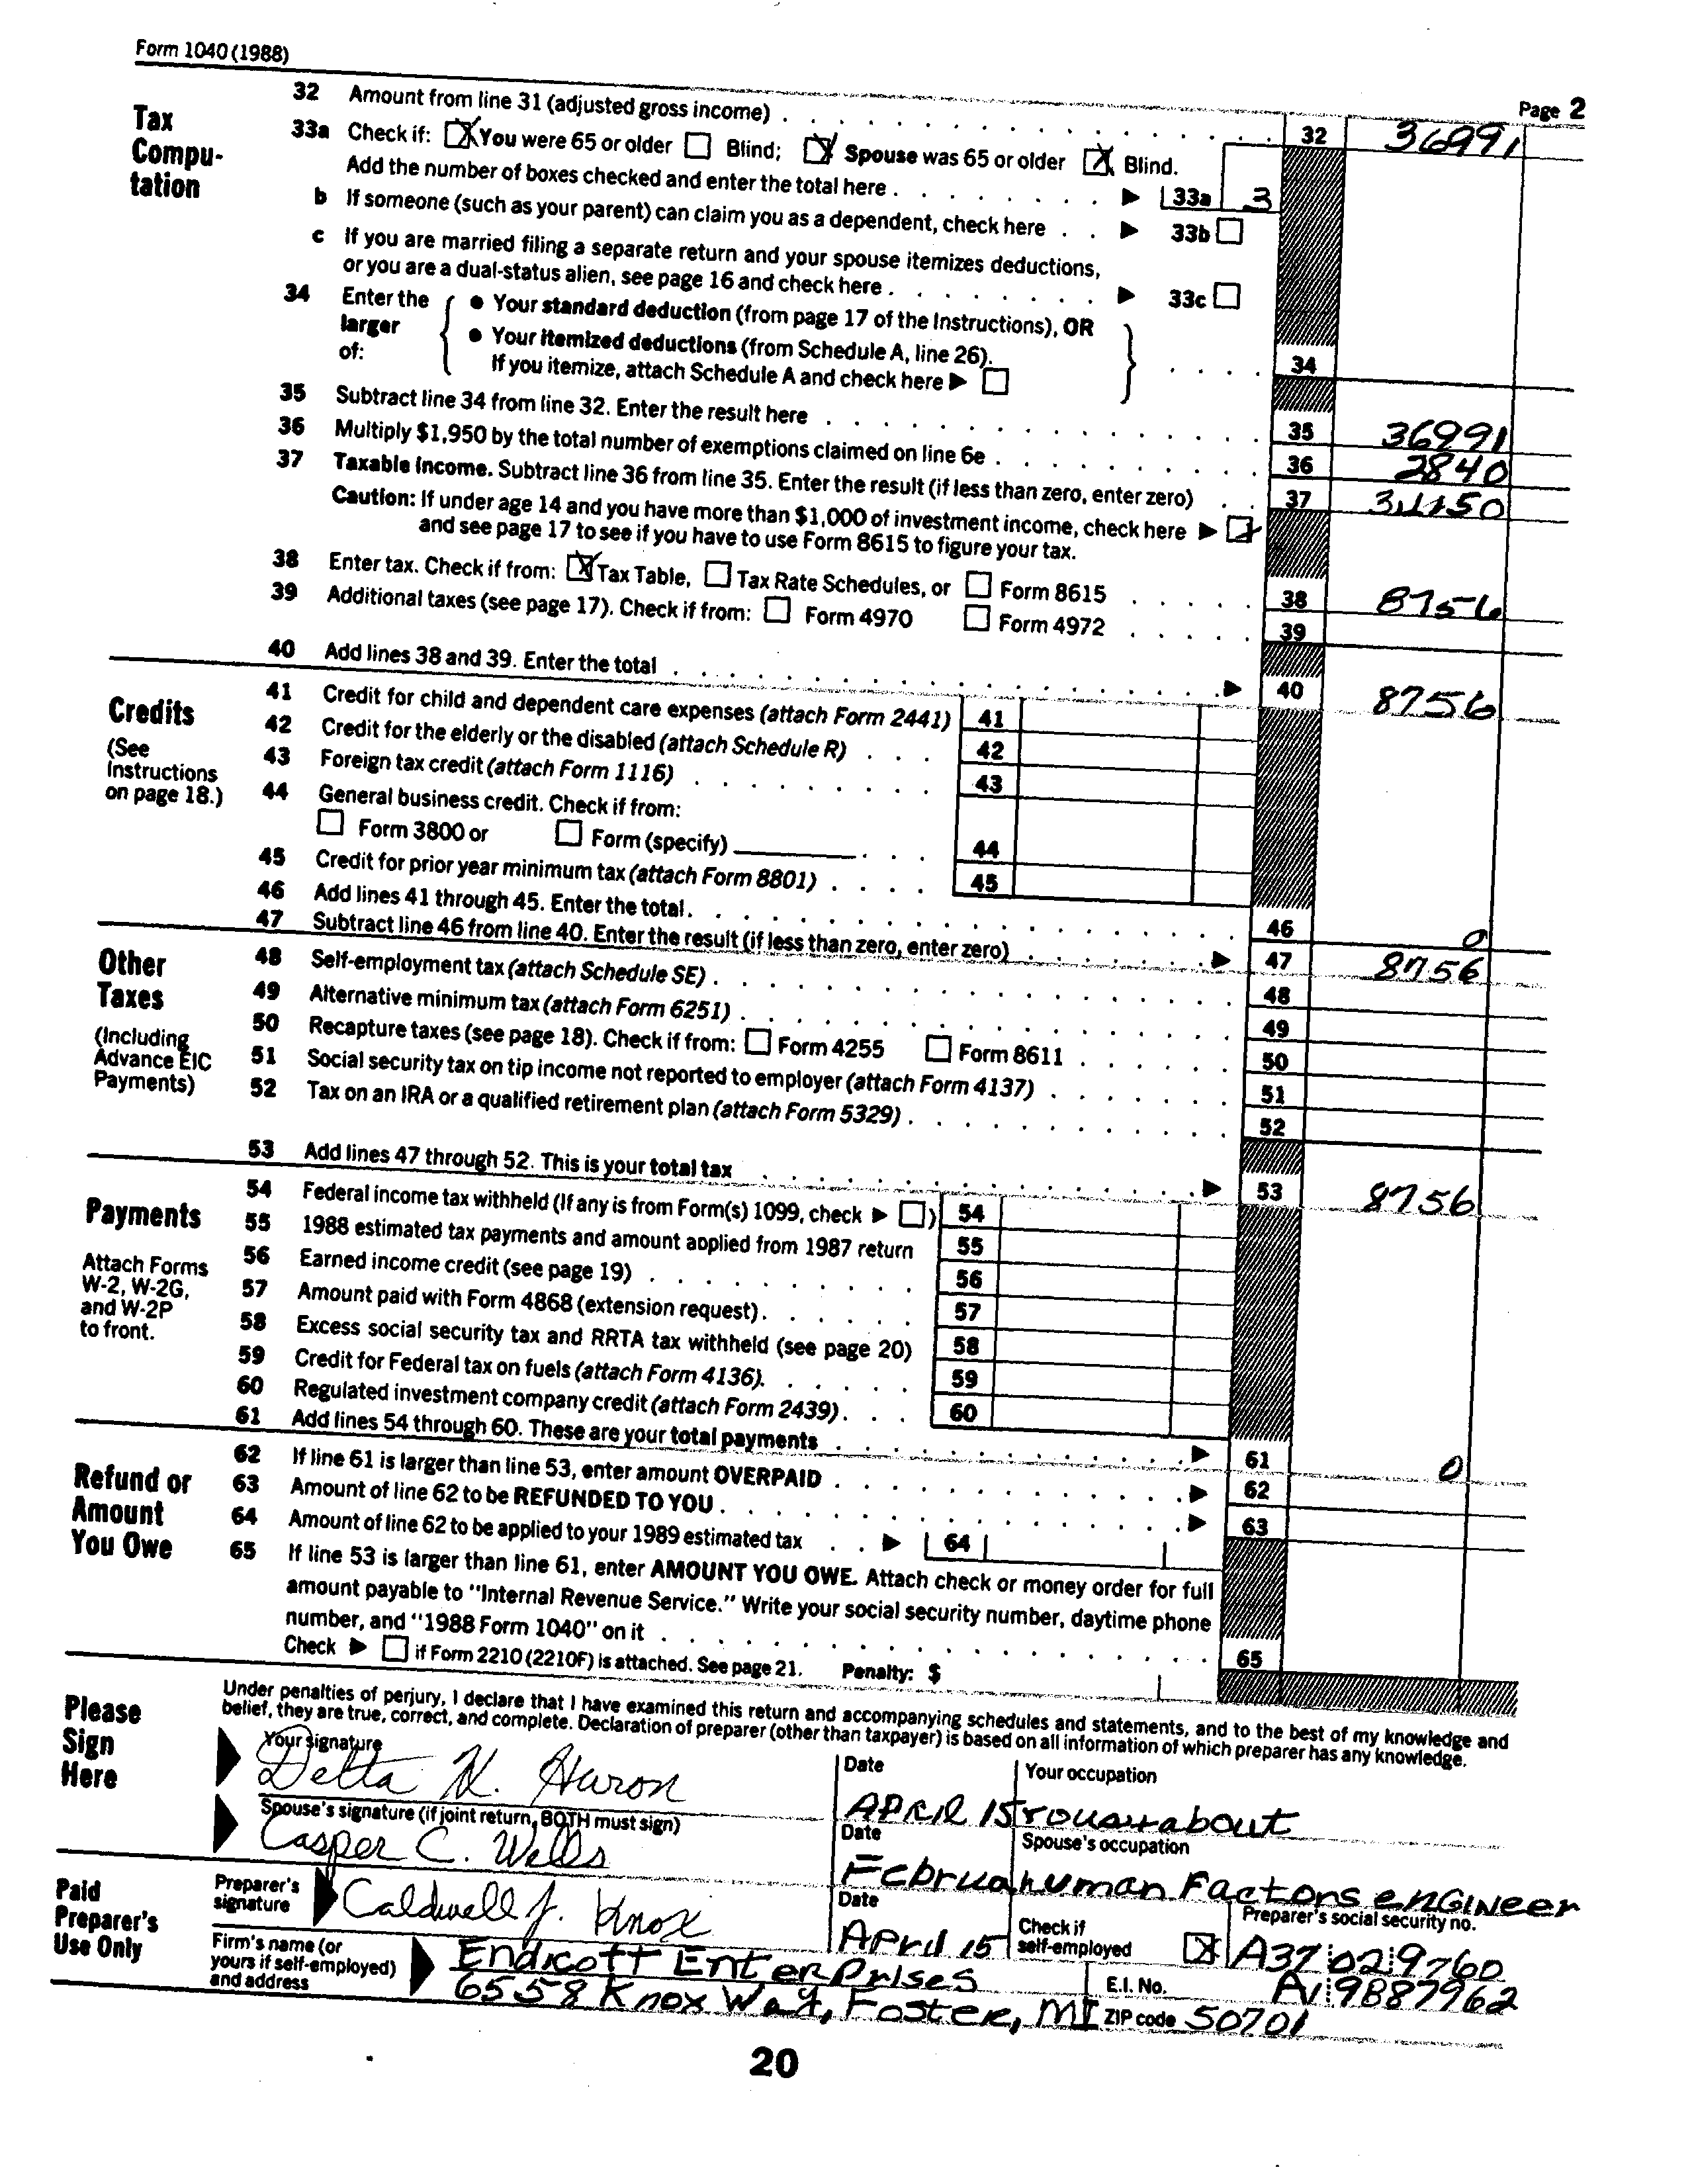 Form 1040 (1988)
Page 2
Tax Compu-tation
32 Amount from line 31 (adjusted gross income) . . . . 32 36991
33a Check if: [X] You were 65 or older [ ] Blind; [X] Spouse was 65 or older [X] Blind.
Add the number of boxes checked and enter the total here . . . ▶ 33a 3
b If someone (such as your parent) can claim you as a dependent, check here . . ▶ 33b [ ]
c If you are married filing a separate return and your spouse itemizes deductions,
or you are a dual-status alien, see page 16 and check here . . . ▶ 33c [ ]
34 Enter the larger of: { ● Your standard deduction (from page 17 of the Instructions), OR
● Your itemized deductions (from Schedule A, line 26).
If you itemize, attach Schedule A and check here ▶ [ ] } . . . . 34
35 Subtract line 34 from line 32. Enter the result here . . . . 35 36991
36 Multiply $1,950 by the total number of exemptions claimed on line 6e . . . . 36 2840
37 Taxable income. Subtract line 36 from line 35. Enter the result (if less than zero, enter zero) . . 37
Caution: If under age 14 and you have more than $1,000 of investment income, check here ▶ [X]
and see page 17 to see if you have to use Form 8615 to figure your tax.
38 Enter tax. Check if from: [X] Tax Table, [ ] Tax Rate Schedules, or [ ] Form 8615 . . . . 38 8756
39 Additional taxes (see page 17). Check if from: [ ] Form 4970 [ ] Form 4972 . . . . 39
40 Add lines 38 and 39. Enter the total . . . . ▶ 40 8756
Credits
(See Instructions on page 18.)
41 Credit for child and dependent care expenses (attach Form 2441) 41
42 Credit for the elderly or the disabled (attach Schedule R) . . . 42
43 Foreign tax credit (attach Form 1116) . . . . 43
44 General business credit. Check if from:
[ ] Form 3800 or [ ] Form (specify) ________ . . . 44
45 Credit for prior year minimum tax (attach Form 8801) . . . . 45
46 Add lines 41 through 45. Enter the total . . . . 46 0
47 Subtract line 46 from line 40. Enter the result (if less than zero, enter zero) . . . . ▶ 47 8756
Other Taxes
(Including Advance EIC Payments)
48 Self-employment tax (attach Schedule SE) . . . . 48
49 Alternative minimum tax (attach Form 6251) . . . . 49
50 Recapture taxes (see page 18). Check if from: [ ] Form 4255 [ ] Form 8611 . . . . 50
51 Social security tax on tip income not reported to employer (attach Form 4137) . . . . 51
52 Tax on an IRA or a qualified retirement plan (attach Form 5329) . . . . 52
53 Add lines 47 through 52. This is your total tax . . . . ▶ 53 8756
Payments
Attach Forms W-2, W-2G, and W-2P to front.
54 Federal income tax withheld (If any is from Form(s) 1099, check ▶ [ ] ) 54
55 1988 estimated tax payments and amount applied from 1987 return 55
56 Earned income credit (see page 19) . . . . 56
57 Amount paid with Form 4868 (extension request) . . . . 57
58 Excess social security tax and RRTA tax withheld (see page 20) 58
59 Credit for Federal tax on fuels (attach Form 4136) . . . . 59
60 Regulated investment company credit (attach Form 2439) . . . 60
61 Add lines 54 through 60. These are your total payments . . . . ▶ 61 0
Refund or Amount You Owe
62 If line 61 is larger than line 53, enter amount OVERPAID . . . . ▶ 62
63 Amount of line 62 to be REFUNDED TO YOU . . . . ▶ 63
64 Amount of line 62 to be applied to your 1989 estimated tax . . ▶ 64
65 If line 53 is larger than line 61, enter AMOUNT YOU OWE. Attach check or money order for full
amount payable to "Internal Revenue Service." Write your social security number, daytime phone
number, and "1988 Form 1040" on it . . . . 65
Check ▶ [ ] if Form 2210 (2210F) is attached. See page 21. Penalty: $
Please Sign Here
Under penalties of perjury, I declare that I have examined this return and accompanying schedules and statements, and to the best of my knowledge and
belief, they are true, correct, and complete. Declaration of preparer (other than taxpayer) is based on all information of which preparer has any knowledge.
Your signature Date Your occupation
Delta K. Huron APRIL 15 roustabout
Spouse's signature (if joint return, BOTH must sign) Date Spouse's occupation
Casper C. Wells Februa human Factors enGINeer
Paid Preparer's Use Only
Preparer's signature Caldwell J. Knox Date April 15 Check if self-employed [X] Preparer's social security no. A37 02 9760
Firm's name (or yours if self-employed) and address Endicott EnterPrises E.I. No. A1 9887962
6558 Knox Way, Foster, MI ZIP code 50701
20